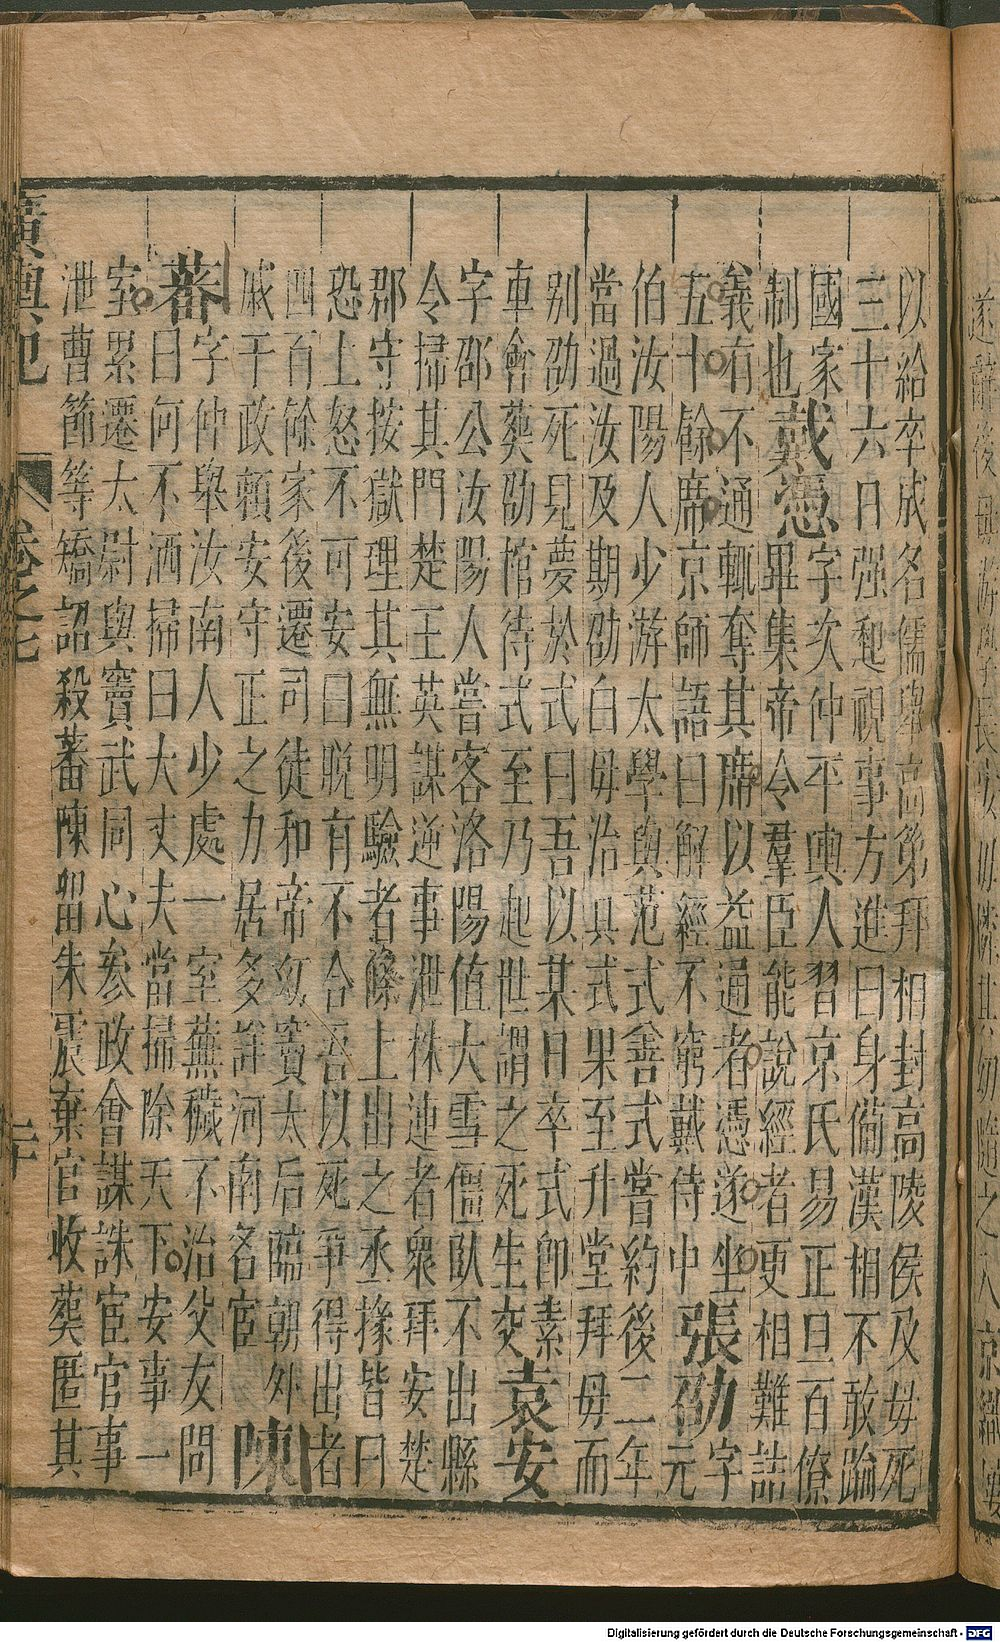 以給卒成名儒舉高第拜相封高陵侯及母死
三十六日强起視事方進曰身備漢相不敢踰
國家
制也
戴憑
字次仲平輿人習京氏易正旦百僚
畢集帝令羣臣能說經者更相難詰
義有不通輒奪其席以益通者憑遂坐
五十餘席京師語曰解經不窮戴侍中
張劭
字
元
伯汝陽人少游太學與范式善式嘗約後二年
當過汝及期劭白母治具式果至升堂拜母而
別劭死見夢於式曰吾以某日卒式卽素
車會葬劭棺待式至乃起世謂之死生交
袁安
字邵公汝陽人嘗客洛陽值大雪僵臥不出縣
令掃其門楚王英謀逆事泄株連者衆拜安楚
郡守按獄理其無明驗者條上出之丞掾皆曰
恐上怒不可安曰脫有不合吾以死爭得出者
四百餘家後遷司徒和帝幼竇太后臨朝外
戚干政賴安守正之力居多詳河南名宦
陳
蕃
字仲舉汝南人少處一室蕪穢不治父友問
曰何不洒掃曰大丈夫當掃除天下安事一
室累遷太尉與竇武同心參政會謀誅宦官事
泄曹節等矯詔殺蕃陳留朱震棄官收葬匿其
廣輿記 卷之七
Digitalisierung gefördert durch die Deutsche Forschungsgemeinschaft - DFG